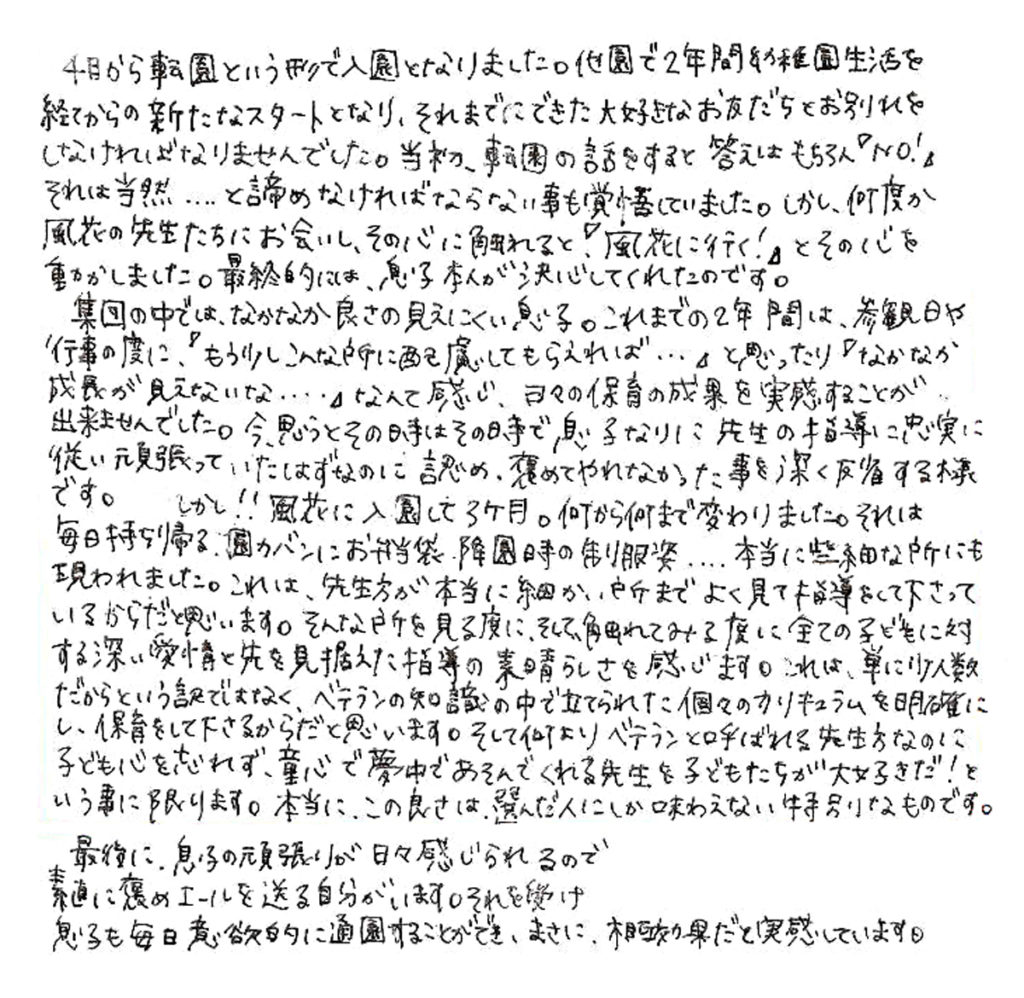 4月から転園という形で入園となりました。他園で2年間幼稚園生活を
経てからの新たなスタートとなり、それまでにできた大好きなお友だちとお別れを
しなければなりませんでした。当初、転園の話をすると答えはもちろん『NO!』
それは当然....と諦めなければならない事も覚悟していました。しかし、何度か
風花の先生たちにお会いし、その心に触れると『風花に行く!』とその心を
動かしました。最終的には、息子本人が決心してくれたのです。
集団の中では、なかなか良さの見えにくい息子。これまでの2年間は、参観日や
行事の度に、『もう少しこんな所に配慮してもらえれば...』と思ったり『なかなか
成長が見えないな....』なんて感じ、日々の保育の成果を実感することが
出来ませんでした。今、思うとその時はその時で息子なりに先生の指導に忠実に
従い頑張っていたはずなのに認め、褒めてやれなかった事を深く反省する様
です。 しかし!!風花に入園して3ケ月。何から何まで変わりました。それは
毎日持ち帰る、園カバンにお弁当袋、降園時の制服姿....本当に些細な所にも
現われました。これは、先生方が本当に細かい所までよく見て指導をして下さって
いるからだと思います。そんな所を見る度に、そして、触れてみる度に全ての子どもに対
する深い愛情と先を見据えた指導の素晴らしさを感じます。これは、単に少人数
だからという訳ではなく、ベテランの知識の中で立てられた個々のカリキュラムを明確に
し、保育をして下さるからだと思います。そして何よりベテランと呼ばれる先生方なのに
子ども心を忘れず、童心で夢中であそんでくれる先生を子どもたちが大好きだ!と
いう事に限ります。本当に、この良さは、選んだ人にしか味わえない特別なものです。
最後に、息子の頑張りが日々感じられるので
素直に褒めエールを送る自分がいます。それを受け
息子も毎日意欲的に通園することができ、まさに、相乗効果だと実感しています。